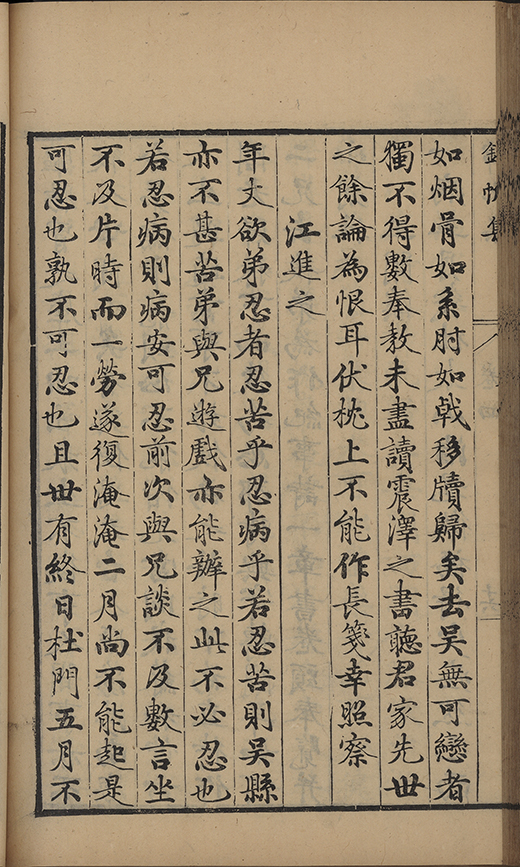 如烟骨如系肘如戟移牘歸矣去吴無可戀者
獨不得數奉教未盡讀震澤之書聽君家先世
之餘論為恨耳伏枕上不能作長箋幸照察
江進之
年丈欲弟忍者忍苦乎忍病乎若忍苦則吴縣
亦不甚苦弟與兄遊戲亦能辦之此不必忍也
若忍病則病安可忍前次與兄談不及數言坐
不及片時而一勞遂復淹淹二月尚不能起是
可忍也孰不可忍也且世有終日杜門五月不